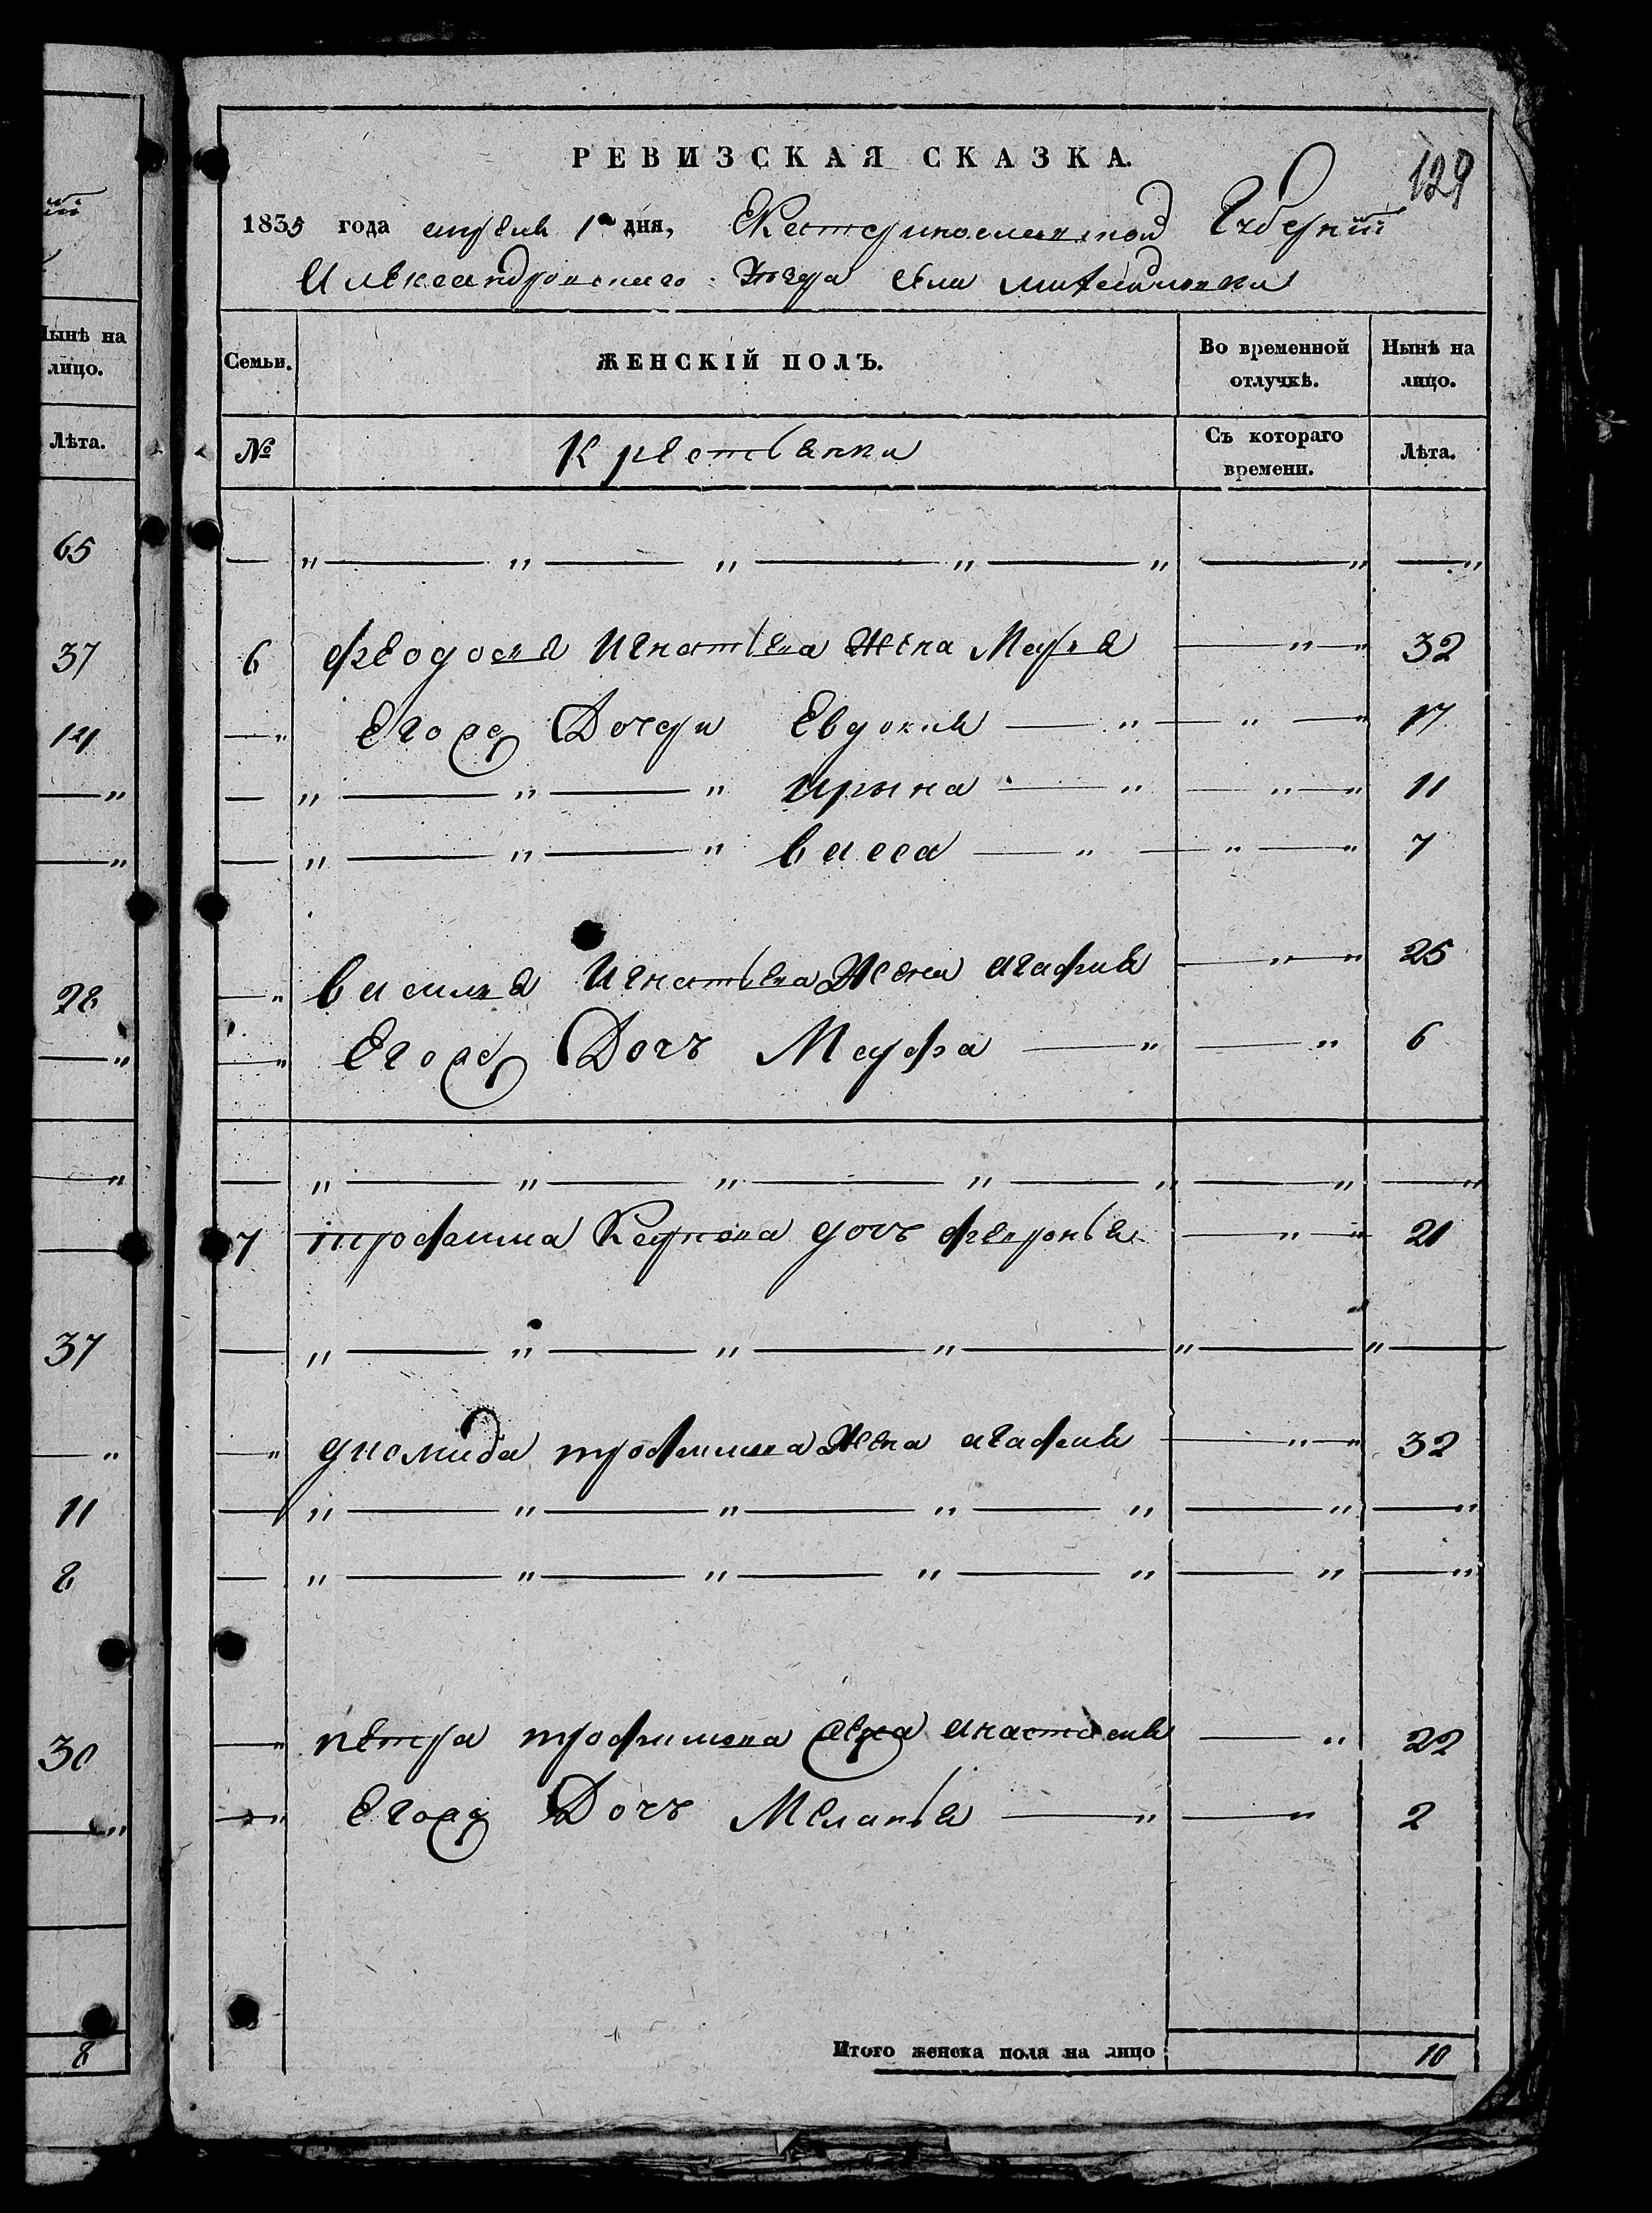 129
РЕВИЗСКАЯ СКАЗКА.
1835 года апреля 1го дня, Екатеринославской Губернии
Александровскаго Уезда Села
Семьи.
ЖЕНСКІЙ ПОЛЪ.
Во временной отлучкѣ.
Нынѣ на лицо.
№
Крестьянки
Съ котораго времени.
Лѣта.
6 Феодосея Игнатьева Жена Марья 32
Егоже Дочери Евдокия 17
ирына 11
васса 7
василея Игнатьева Жена агафия 25
Егоже Дочь Марфа 6
7 трофима Карпова дочь февронья 21
диомида трофимова Жена агафия 32
петра трофимова жена анастасия 22
Егоже Дочь Меланья 2
Итого женска пола на лицо 10
Нынѣ на лицо.
Лѣта.
65
37
14
28
37
11
8
30
8